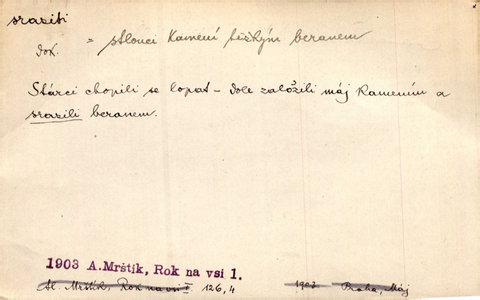 sraziti
dok.
= stlouci kamení těžkým beranem
Stárci chopili se lopat – dole založili máj kamením a
srazili beranem.
1903 A.Mrštík, Rok na vsi 1.
Al. Mrštík, Rok na vsi I 126,4 1903 Praha, Máj